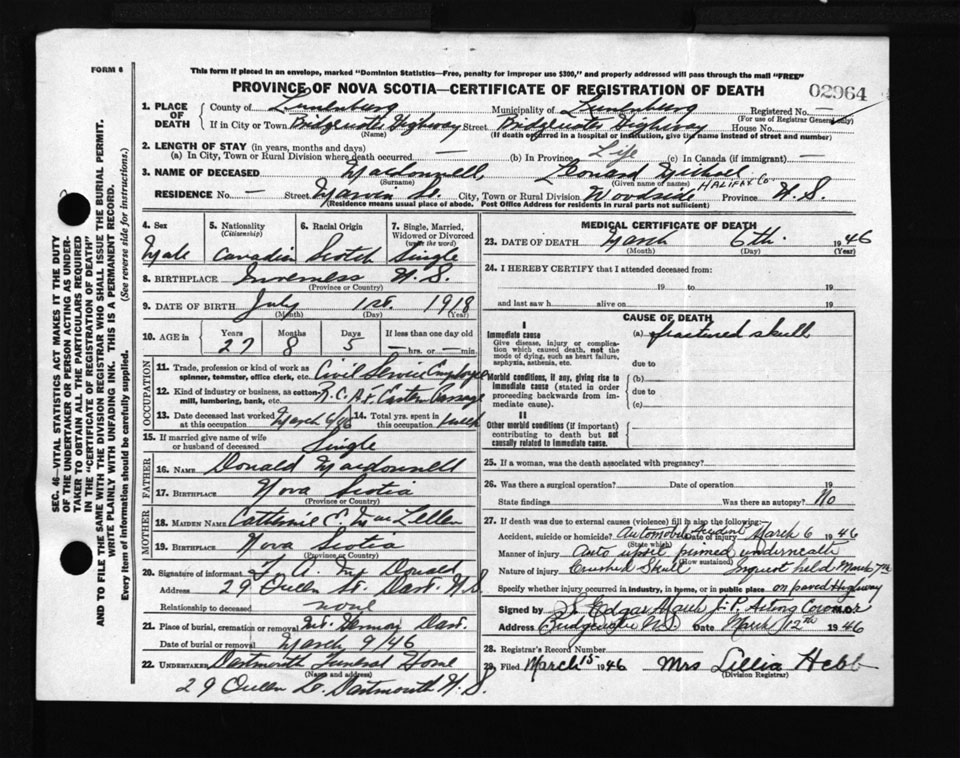 FORM 6
This form if placed in an envelope, marked "Dominion Statistics—Free, penalty for improper use $300," and properly addressed will pass through the mail "FREE"
PROVINCE OF NOVA SCOTIA—CERTIFICATE OF REGISTRATION OF DEATH
02964
1. PLACE OF DEATH County of Lunenburg Municipality of Lunenburg Registered No. —
(For use of Registrar General only)
If in City or Town Bridgewater Highway Street Bridgewater Highway House No.
(Name) (If death occurred in a hospital or institution, give the name instead of street and number)
2. LENGTH OF STAY (in years, months and days)
(a) In City, Town or Rural Division where death occurred — (b) In Province Life (c) In Canada (if immigrant) —
3. NAME OF DECEASED Macdonnell, Leonard
(Surname) (Given name or names)
HALIFAX Co.
RESIDENCE No. — Street Marvin St. City, Town or Rural Division Woodside Province N.S.
(Residence means usual place of abode. Post Office Address for residents in rural parts not sufficient)
4. Sex Male
5. Nationality (Citizenship) Canadian
6. Racial Origin Scotch
7. Single, Married, Widowed or Divorced (write the word) Single
8. BIRTHPLACE Inverness N.S.
(Province or Country)
9. DATE OF BIRTH July 1st. 1918
(Month) (Day) (Year)
10. AGE in Years 27 Months 8 Days 5 If less than one day old — hrs. or — min.
OCCUPATION
11. Trade, profession or kind of work as spinner, teamster, office clerk, etc. Civil Service Employee
12. Kind of industry or business, as cotton-mill, lumbering, bank, etc. R.C.A.F. Eastern Passage
13. Date deceased last worked at this occupation March 6/46
14. Total yrs. spent in this occupation 1 week
15. If married give name of wife or husband of deceased Single
FATHER
16. NAME Donald Macdonnell
17. BIRTHPLACE Nova Scotia
(Province or Country)
MOTHER
18. MAIDEN NAME Catherine C. MacLellan
19. BIRTHPLACE Nova Scotia
(Province or Country)
20. Signature of informant McDonald
Address 29 Queen St. Dart. N.S.
Relationship to deceased none
21. Place of burial, cremation or removal Mt. Hermon Dart.
Date of burial or removal March 9/46
22. UNDERTAKER Dartmouth Funeral Home
(Name and address)
29 Queen St. Dartmouth N.S.
MEDICAL CERTIFICATE OF DEATH
23. DATE OF DEATH March 6th. 1946
(Month) (Day) (Year)
24. I HEREBY CERTIFY that I attended deceased from:
19 to 19
and last saw h alive on 19
CAUSE OF DEATH
I
Immediate cause (a) fractured skull
Give disease, injury or complication which caused death, not the mode of dying, such as heart failure, asphyxia, asthenia, etc.
due to
Morbid conditions, if any, giving rise to immediate cause (stated in order proceeding backwards from immediate cause).
(b)
due to
(c)
II
Other morbid conditions (if important) contributing to death but not causally related to immediate cause.
25. If a woman, was the death associated with pregnancy?
26. Was there a surgical operation? Date of operation 19
State findings Was there an autopsy? No
27. If death was due to external causes (violence) fill in also the following:—
Accident, suicide or homicide? Automobile Accident Date of injury March 6 1946
(State which)
Manner of injury Auto upset pinned underneath
(How sustained)
Nature of injury Crushed Skull Inquest held March 7th
Specify whether injury occurred in industry, in home, or in public place on paved Highway
Signed by S. Edgar March J.P. Acting Coroner
Address Bridgewater N.S. Date March 12th 1946
28. Registrar's Record Number
29. Filed March 15 1946 Mrs Lillia Hebb
(Division Registrar)
SEC. 46—VITAL STATISTICS ACT MAKES IT THE DUTY
OF THE UNDERTAKER OR PERSON ACTING AS UNDER-
TAKER TO OBTAIN ALL THE PARTICULARS REQUIRED
IN THE "CERTIFICATE OF REGISTRATION OF DEATH"
AND TO FILE THE SAME WITH THE DIVISION REGISTRAR WHO SHALL ISSUE THE BURIAL PERMIT.
WRITE PLAINLY WITH UNFADING INK. THIS IS A PERMANENT RECORD.
Every item of information should be carefully supplied. (See reverse side for instructions.)